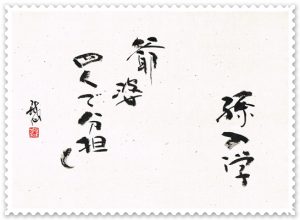 孫入学
爺婆
四人で分担し